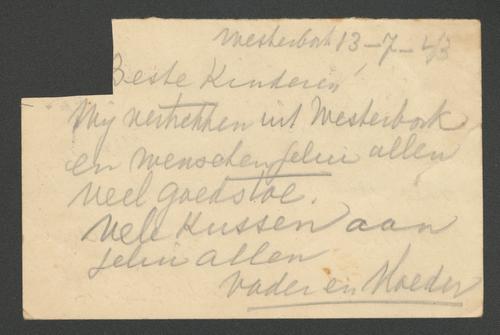 Westerbork 13-7-43
Beste Kinderen!
Wij vertrekken uit Westerbork
en menschen jelui allen
veel goeds toe.
Vele Kussen aan
jelui allen
Vader en Moeder